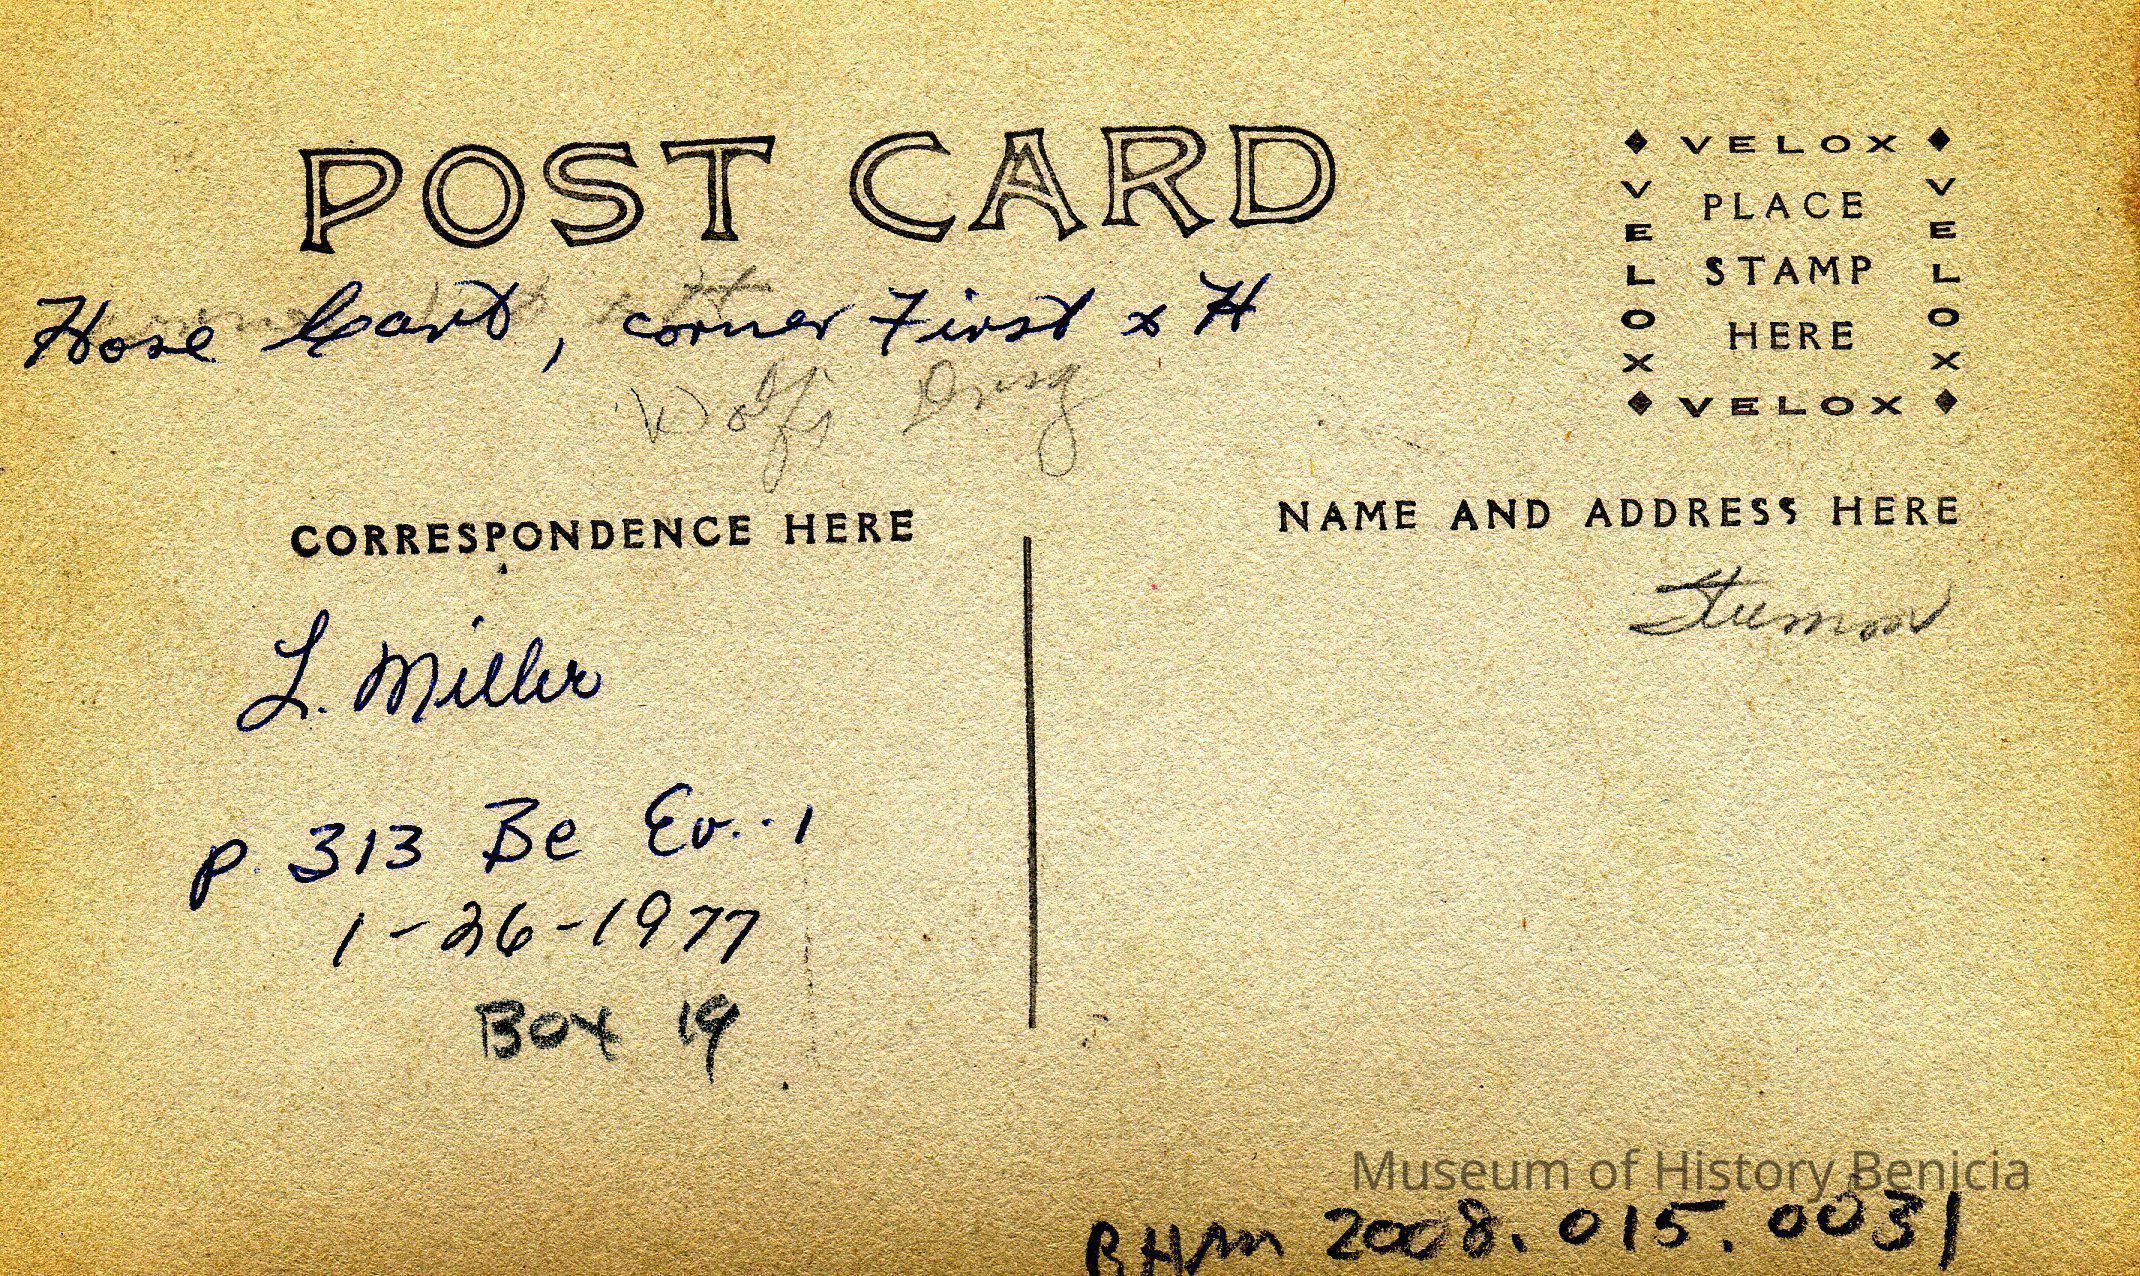 POST CARD
Hose Cart, corner First & H
Wolf's Drug
VELOX
VELOX
PLACE
STAMP
HERE
VELOX
VELOX
CORRESPONDENCE HERE
NAME AND ADDRESS HERE
Stumm
L. Miller
P. 313 Be Ev. . 1
1-26-1977
Box 19
Museum of History Benicia
BHM 2008.015.0031